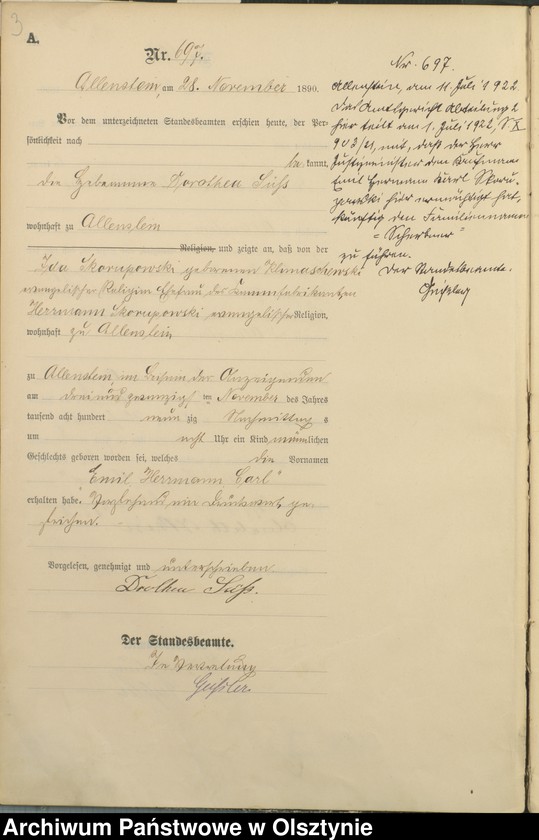 3
A.
Nr. 697.
Allenstein, am 28. November 1890.
Vor dem unterzeichneten Standesbeamten erschien heute, der Per-
sönlichkeit nach
bekannt,
die Hebamme Dorothea Süss
wohnhaft zu Allenstein
Religion, und zeigte an, daß von der
Ida Skorupowski geborenen Klimaschewski
evangelischer Religion Ehefrau des Kammfabrikanten
Herrmann Skorupowski evangelischer Religion,
wohnhaft zu Allenstein
zu Allenstein im der Anzeigenden
am drei und zwanzigsten November des Jahres
tausend acht hundert neun zig Nachmittags
um acht Uhr ein Kind männlichen
Geschlechts geboren worden sei, welches die Vornamen
"Emil Herrmann Carl"
erhalten habe. Vorstehend ein Druckwort ge-
strichen.
Vorgelesen, genehmigt und unterschrieben
Dorothea Süss.
Der Standesbeamte.
In Vertretung
Geissler
Nr. 697.
Allenstein, am 11. Juli 1922
Das Amtsgericht Abteilung 2
hier teilt am 1. Juli 1922,
mit, daß der Herr
Justizminister den Kaufmann
Emil Hermann Karl Skoru-
powski hier ermächtigt hat,
künftig den Familiennamen
zu führen.
Der Standesbeamte.
Archiwum Państwowe w Olsztynie